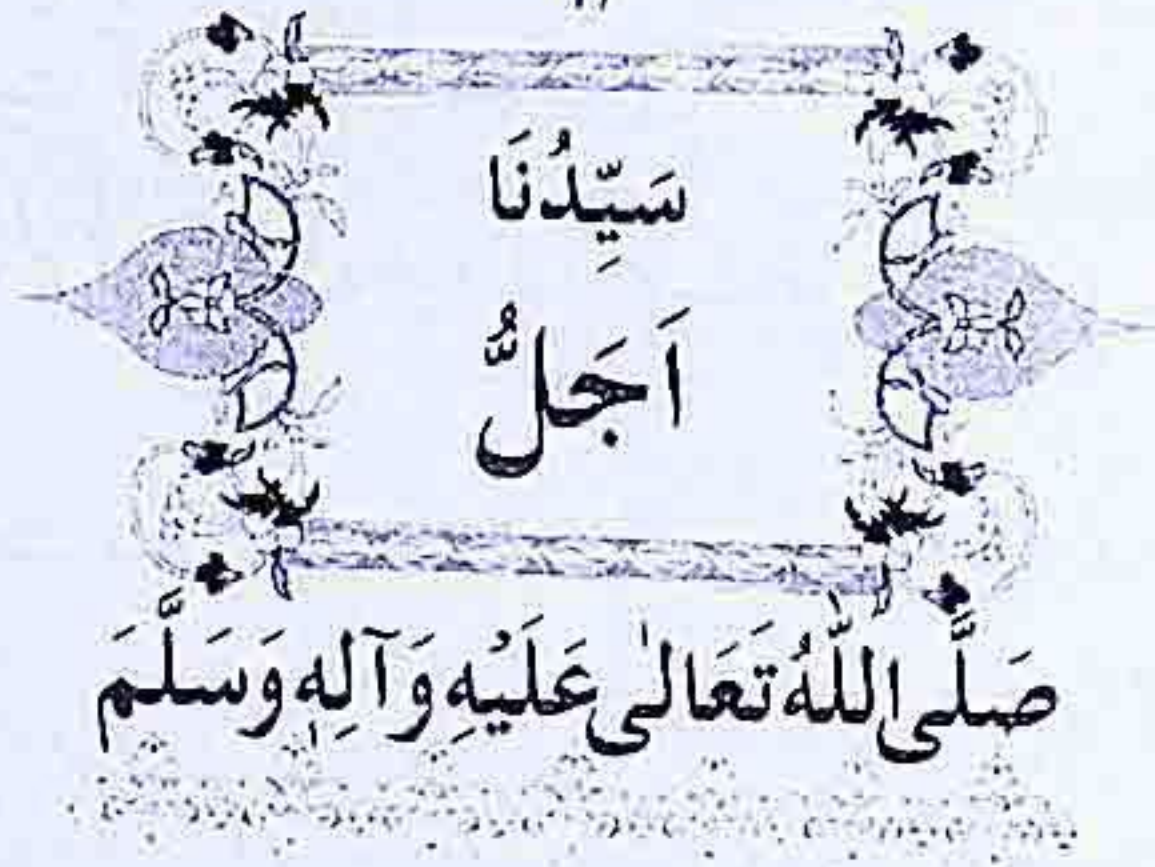 سَيِّدُنَا
اَجَلُّ
صَلَّى اللّٰهُ تَعَالٰى عَلَيْهِ وَآلِهٖ وَسَلَّمَ